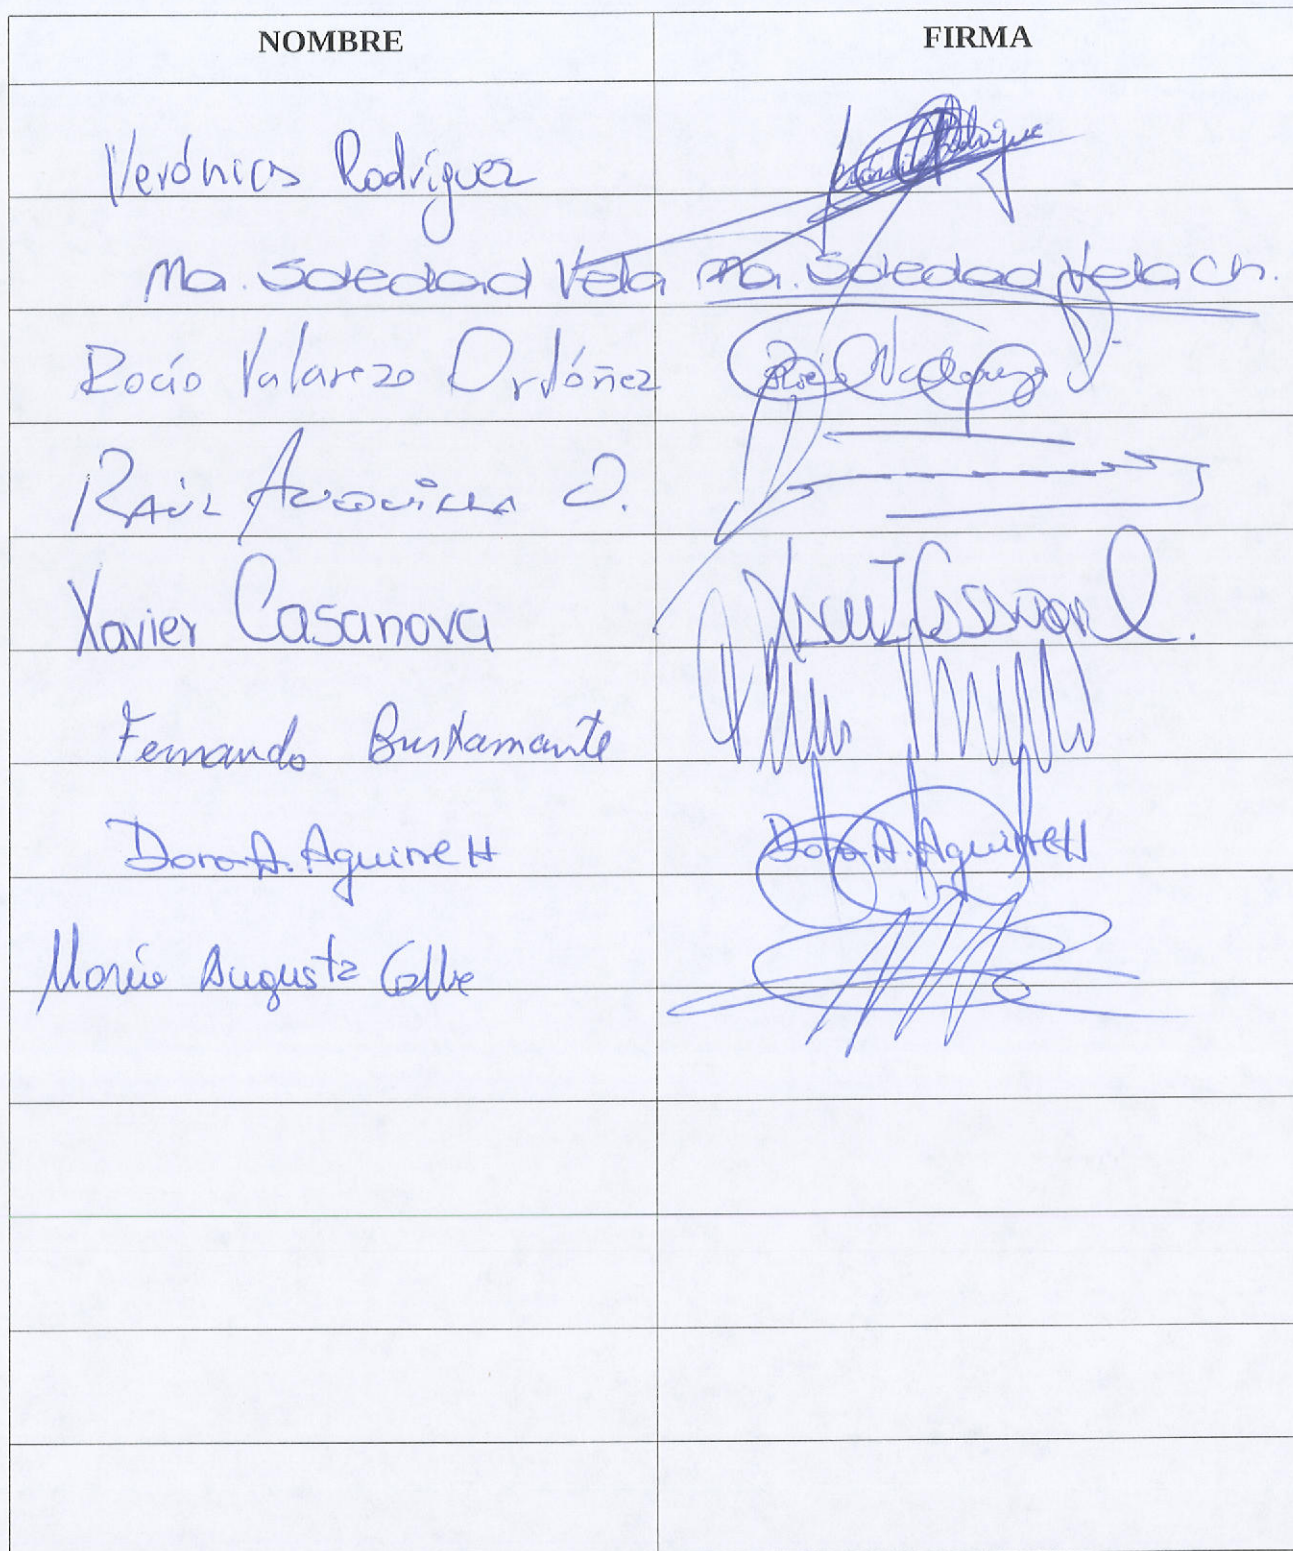 NOMBRE FIRMA
Verónica Rodríguez
Ma. Soledad Vela Ma. Soledad Vela Ch.
Rocío Valarezo Ordóñez Rocío Valarezo
Raúl O.
Xavier Casanova Xavier Casanova
Fernando Bustamante
Dora A. Aguirre H Dora A. Aguirre H
María Augusta Calle